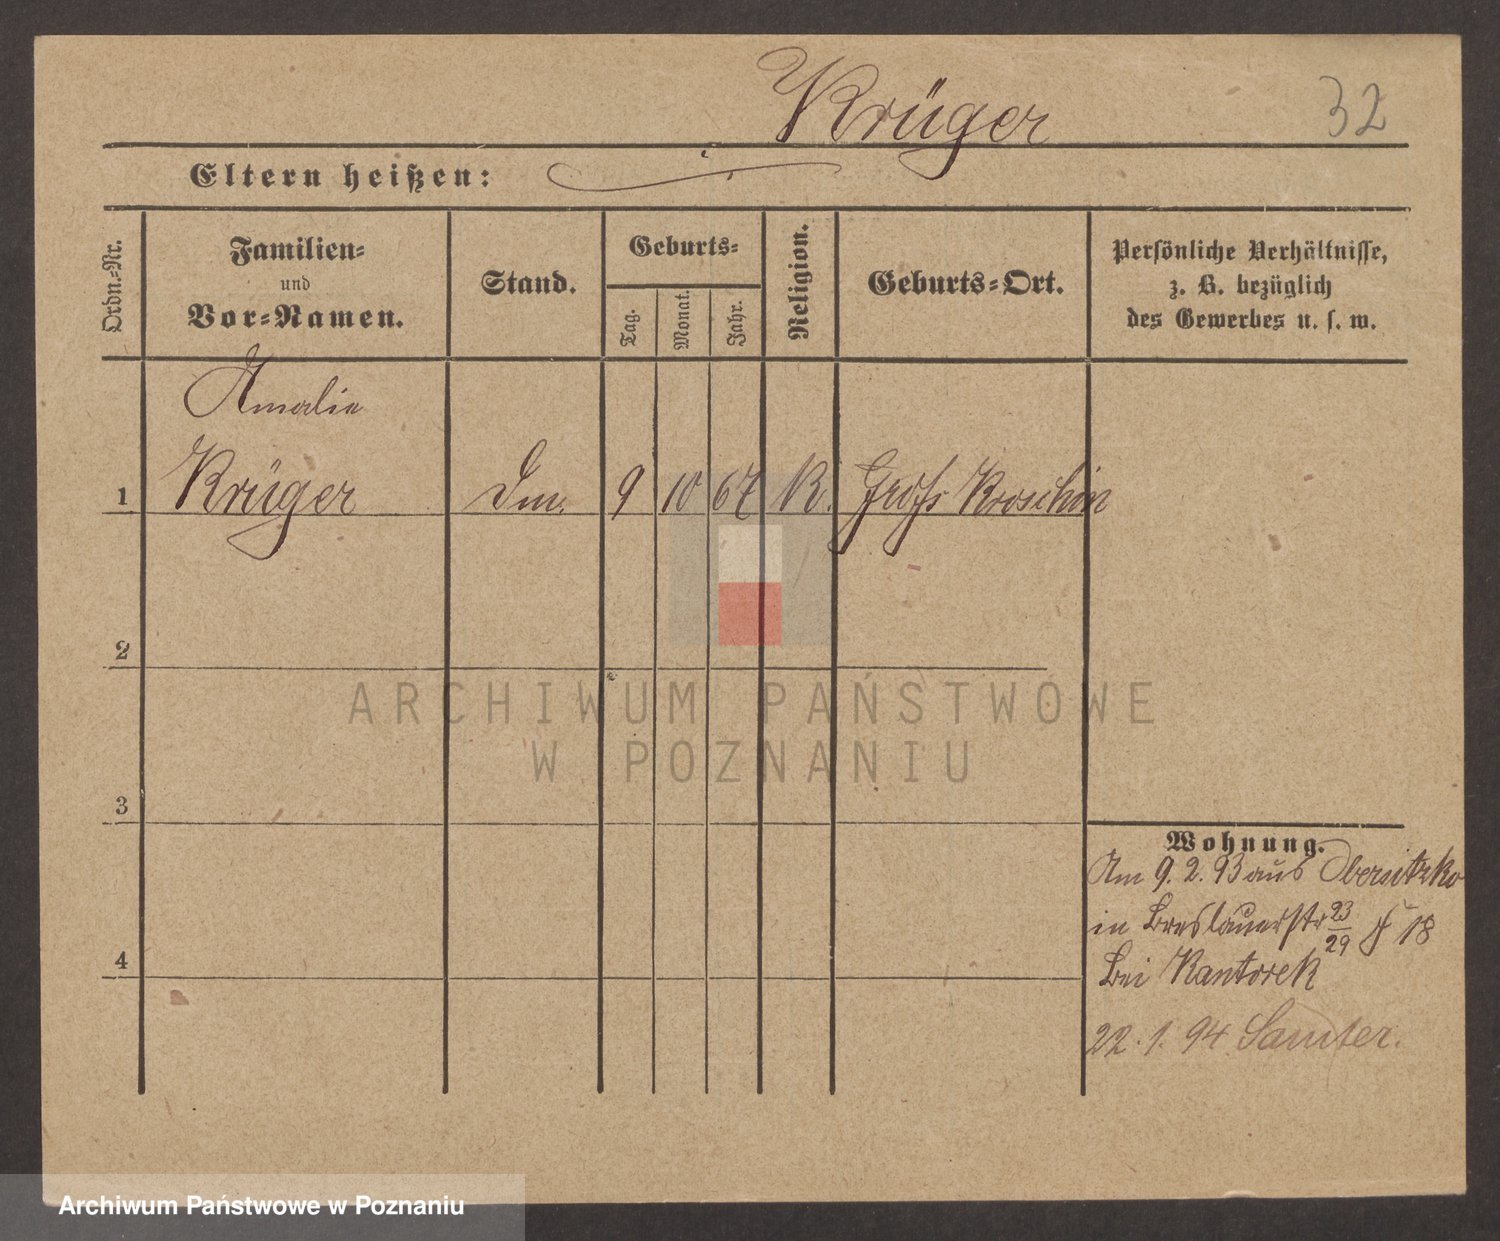 Krüger
32
Eltern heißen:
Ordn.-Nr.
Familien-
und
Vor-Namen.
Stand.
Geburts-
Tag.
Monat.
Jahr.
Religion.
Geburts-Ort.
Persönliche Verhältnisse,
z. B. bezüglich
des Gewerbes u. s. w.
Amalie
1 Krüger 9 10 67 K. Groß Kroschin
2
3
4
Wohnung.
Am 9. 2. 93 aus Obersitzko
in Breslauerstr 23/29 18
bei Kantorek
22. 1. 94 Samter.
ARCHIWUM PAŃSTWOWE
W POZNANIU
Archiwum Państwowe w Poznaniu